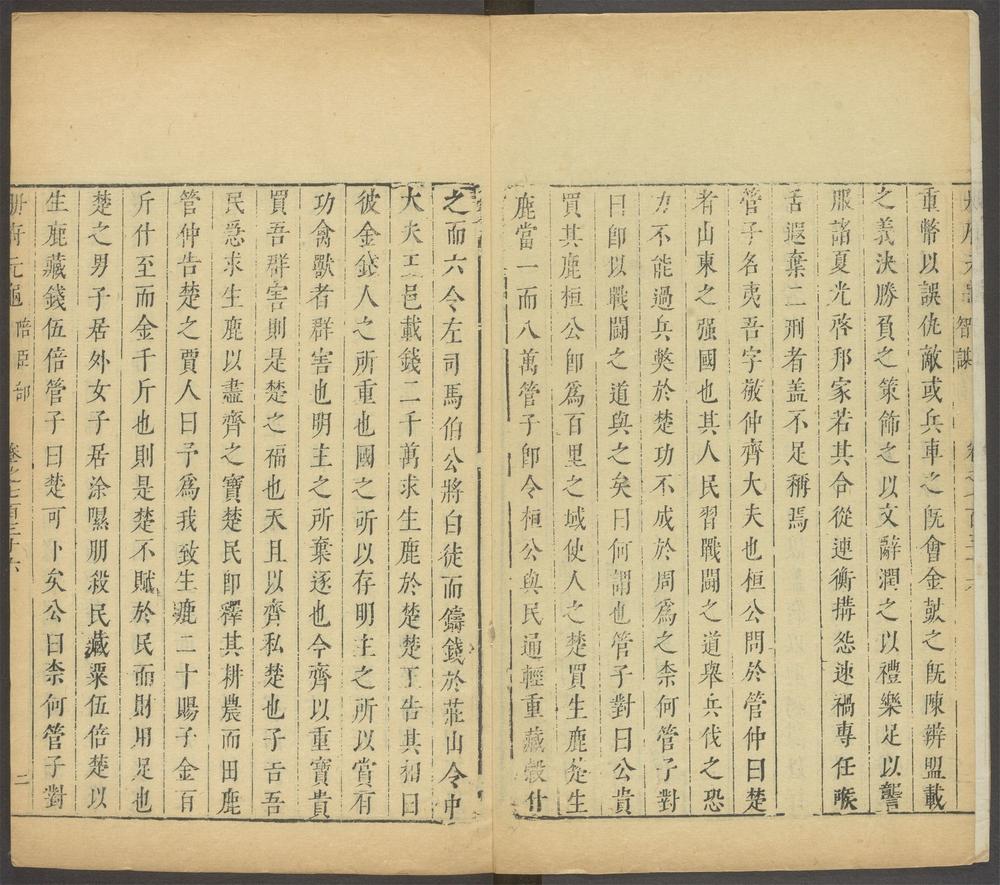 重幣以誤仇敵或兵車之旣會金鼓之旣陳辨盟載
之義決勝負之策飾之以文辭潤之以禮樂足以讋
服諸夏光啓邦家若其合從連衡搆怨速禍專任喉
舌遐棄二刑者盖不足稱焉
管子名夷吾字敬仲齊大夫也桓公問於管仲曰楚
者山東之强國也其人民習戰鬭之道舉兵伐之恐
力不能過兵獘於楚功不成於周爲之柰何管子對
曰卽以戰鬭之道與之矣曰何謂也管子對曰公貴
買其鹿桓公卽爲百里之城使人之楚買生鹿楚生
鹿當一而八萬管子卽令桓公與民通輕重藏榖什
之而六令左司馬伯公將白徒而鑄錢於莊山令中
大夫王邑載錢二千萬求生鹿於楚楚王告其相曰
彼金錢人之所重也國之所以存明主之所以賞有
功禽獸者群害也明主之所棄逐也今齊以重寶貴
買吾群害則是楚之福也天且以齊私楚也子告吾
民急求生鹿以盡齊之寶楚民卽釋其耕農而田鹿
管仲告楚之賈人曰子爲我致生鹿二十賜子金百
斤什至而金千斤也則是楚不賦於民而財用足也
楚之男子居外女子居涂隰朋殺民藏粟伍倍楚以
生鹿藏錢伍倍管子曰楚可下矣公曰柰何管子對
册府元龜 陪臣部 卷之七百三十六 二